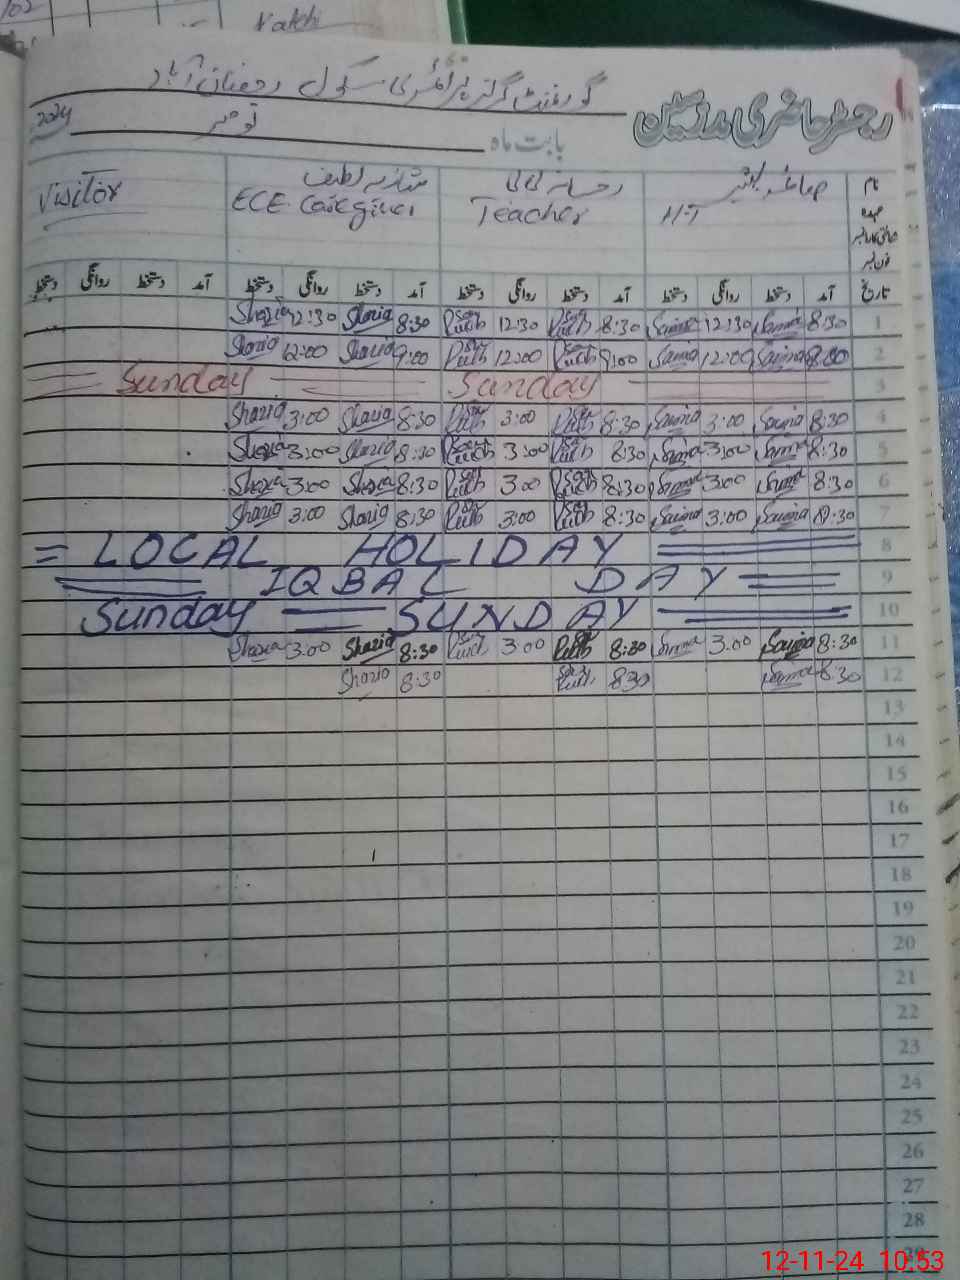 Natchi
گورنمنٹ گرلز پرائمری سکول رحمان آباد
رجسٹر حاضری مدرسین
بابت ماہ نومبر 2024
نام صائمہ رحسانہ بی بی شازیہ لطیف Visitor
عہدہ H-T Teacher ECE. Caregiver
تاریخ آمد دستخط روانگی دستخط آمد دستخط روانگی دستخط آمد دستخط روانگی دستخط آمد دستخط روانگی دستخط
1 8:30 Saima 12:30 Saima 8:30 12:30 8:30 Shazia 12:30 Shazia
2 9:00 Saima 12:00 Saima 9:00 12:00 9:00 Shazia 12:00 Shazia
3 Sunday Sunday
4 8:30 Saima 3:00 Saima 8:30 3:00 8:30 Shazia 3:00 Shazia
5 8:30 Saima 3:00 Saima 8:30 3:00 8:30 Shazia 3:00 Shazia
6 8:30 Saima 3:00 Saima 8:30 3:00 8:30 Shazia 3:00 Shazia
7 8:30 Saima 3:00 Saima 8:30 3:00 8:30 Shazia 3:00 Shazia
8 = LOCAL HOLIDAY
9 IQBAL DAY
10 Sunday SUNDAY
11 8:30 Saima 3.00 Saima 8:30 3:00 8:30 Shazia 3.00 Shazia
12 8:30 Saima 830 8:30 Shazia
13
14
15
16
17
18
19
20
21
22
23
24
25
26
27
28
29
12-11-24 10:53